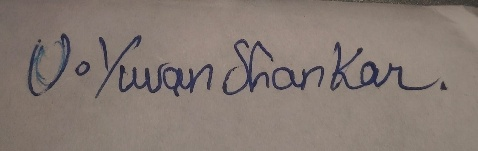 U. Yuvan Shankar.